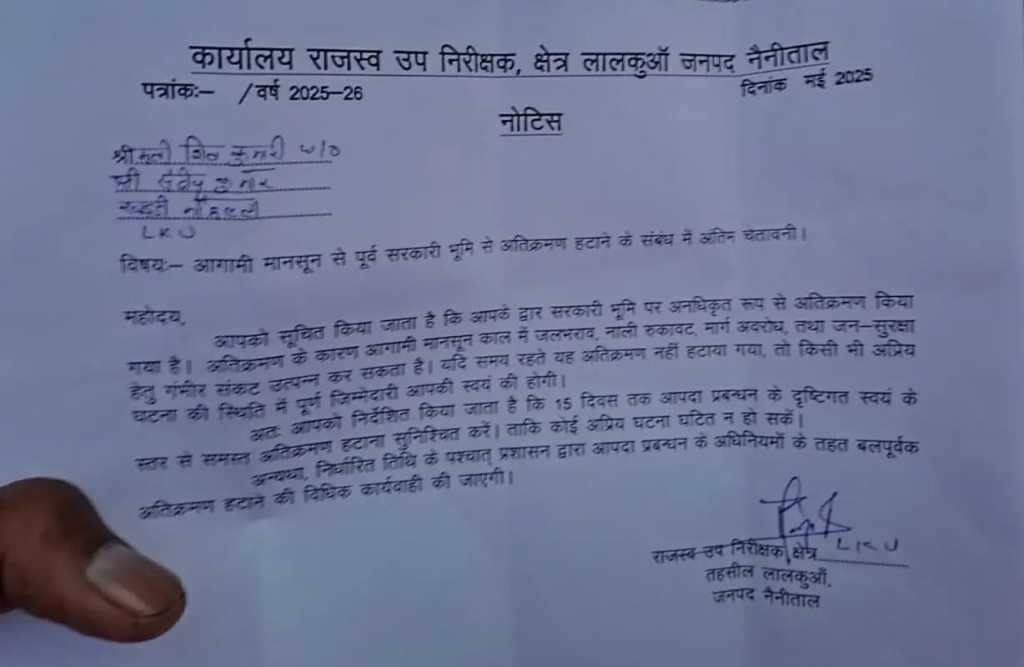 कार्यालय राजस्व उप निरीक्षक, क्षेत्र लालकुऑ जनपद नैनीताल
पत्रांकः– /वर्ष 2025–26
दिनांक मई 2025
नोटिस
श्रीमती शिव कुमारी w/o
श्री कुमार
LKU
विषयः– आगामी मानसून से पूर्व सरकारी भूमि से अतिक्रमण हटाने के संबंध में अंतिम चेतावनी।
महोदय,
आपको सूचित किया जाता है कि आपके द्वार सरकारी भूमि पर अनधिकृत रूप से अतिक्रमण किया
गया है। अतिक्रमण के कारण आगामी मानसून काल में जलभराव, नाली रुकावट, मार्ग अवरोध, तथा जन–सुरक्षा
हेतु गंभीर संकट उत्पन्न कर सकता है। यदि समय रहते यह अतिक्रमण नहीं हटाया गया, तो किसी भी अप्रिय
घटना की स्थिति में पूर्ण जिम्मेदारी आपकी स्वयं की होगी।
अतः आपको निर्देशित किया जाता है कि 15 दिवस तक आपदा प्रबन्धन के दृष्टिगत स्वयं के
स्तर से समस्त अतिक्रमण हटाना सुनिश्चित करें। ताकि कोई अप्रिय घटना घटित न हो सकें।
अन्यथा, निर्धारित तिथि के पश्चात् प्रशासन द्वारा आपदा प्रबन्धन के अधिनियमों के तहत बलपूर्वक
अतिक्रमण हटाने की विधिक कार्यवाही की जाएगी।
राजस्व उप निरीक्षक क्षेत्र LKU
तहसील लालकुऑं,
जनपद नैनीताल